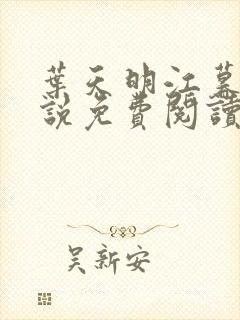 葉天明江慕
說免費閱讀
吴新安